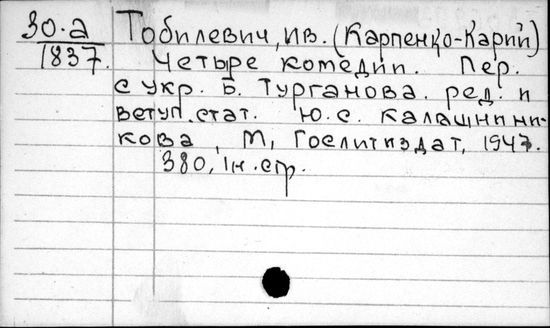 30.а
1837.
Тобилевич, ив. (Карпенко-Карий)
Четыре комедии. Пер.
с укр. Б. Турганова. ред. и
вступ. стат. Ю. С. Калашнини-
кова, М, Гослитиздат, 1947.
380, 1н. стр.